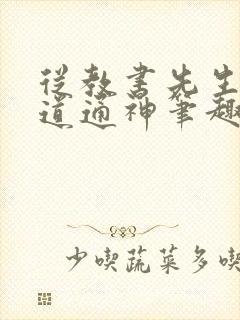 從教書先生
道通神筆趣
少喫蔬菜多喫